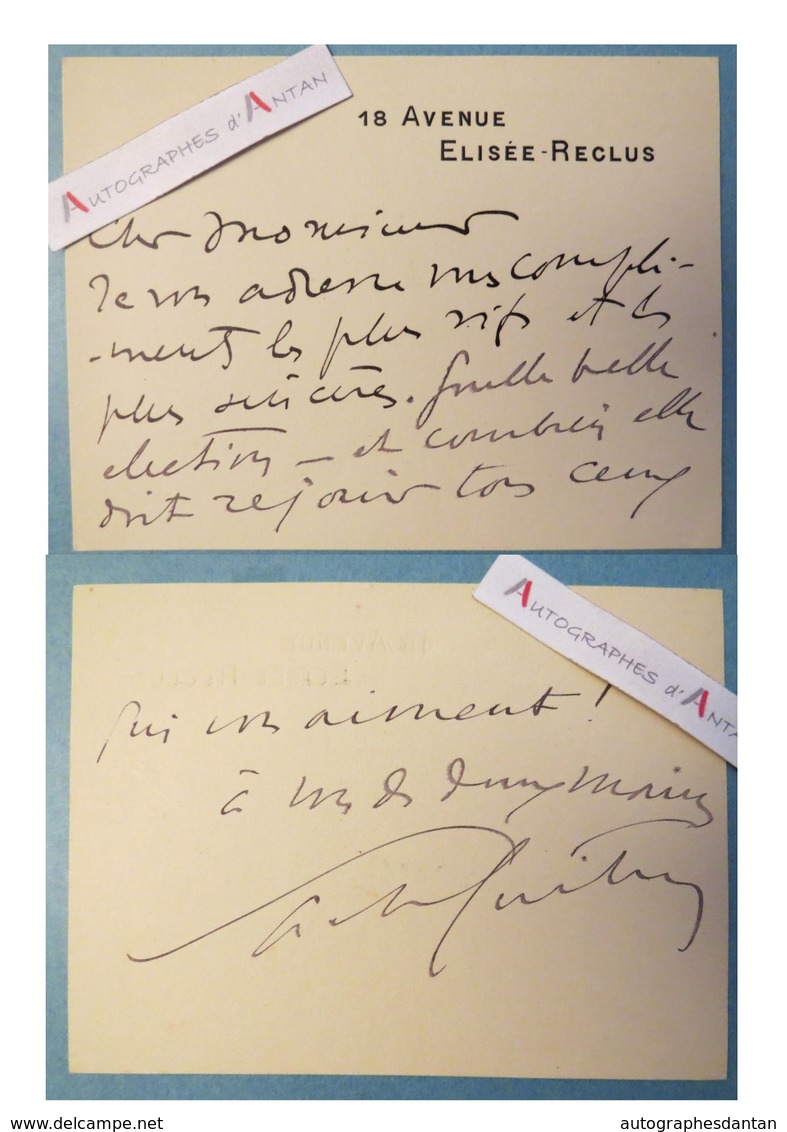 AUTOGRAPHES d'ANTAN
18 AVENUE
ELISÉE-RECLUS
Cher Monsieur
Je vous adresse mes compli-
-ments les plus vifs et les
plus sincères. Quelle belle
election — et combien elle
doit rejouir tous ceux
AUTOGRAPHES d'ANTA
18 AVENUE
ELISÉE-RECLUS
qui vous aiment !
à vous des deux mains
Sacha Guitry
www.delcampe.net
autographesdantan